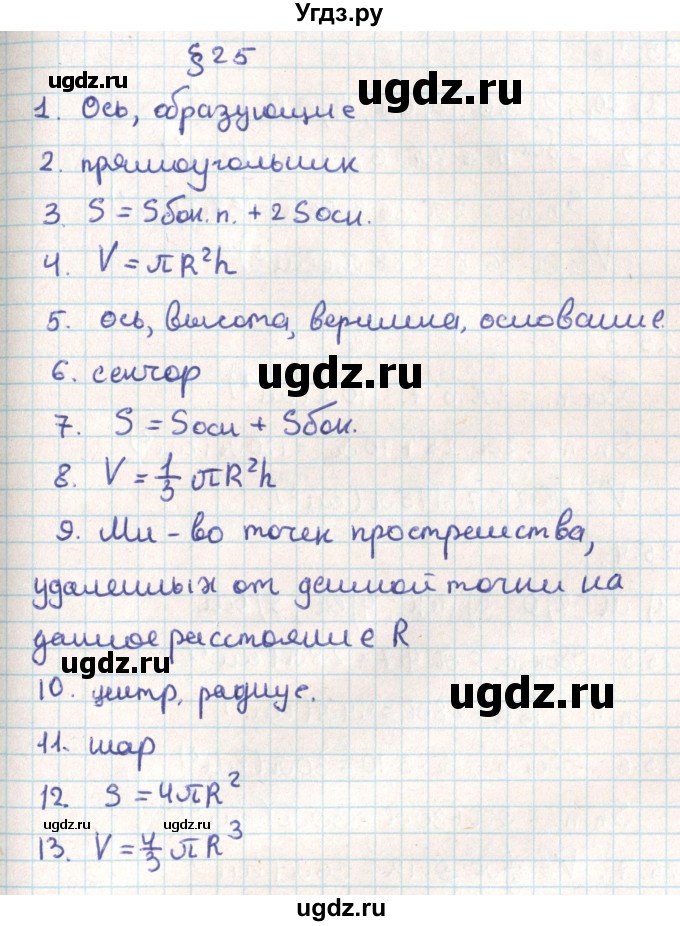 Угдз.ру
§ 25
ugdz.ru
ugdz.ru
1. Ось, образующие
2. прямоугольник
3. S = Sбок.п. + 2 Sосн.
4. V = πR²h
5. ось, высота, вершина, основание.
6. сектор
ugdz.ru
7. S = Sосн + Sбок.
8. V = 1/3 πR²h
9. Мн-во точек пространства,
удаленных от данной точки на
данное расстояние R
ugdz.ru
10. центр, радиус.
ugdz.ru
11. шар
12. S = 4πR²
ugdz.ru
ugdz.ru
13. V = 4/3 πR³
ugdz.ru